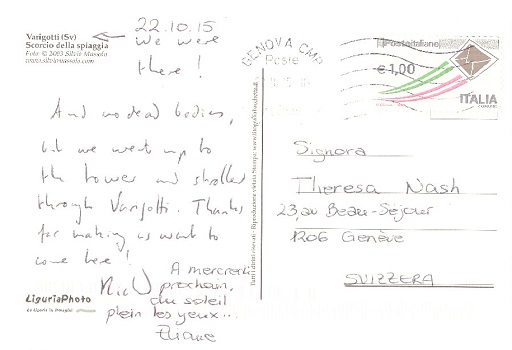 Varigotti (Sv)
Scorcio della spiaggia
Foto: © 2003 Silvio Massolo
www.silviomassolo.com
22.10.15
We were
there!
And no dead bodies,
but we went up to
the tower and strolled
through Varigotti. Thanks
for making us want to
come here!
Nick
A mercredi
prochain,
du soleil
plein les yeux...
Eliane
LiguriaPhoto
La Liguria in Immagini
GENOVA CMP
Poste
Posteitaliane
€1,00
ITALIA
Signora
Theresa Nash
23, av Beau-Séjour
1206 Genève
SVIZZERA